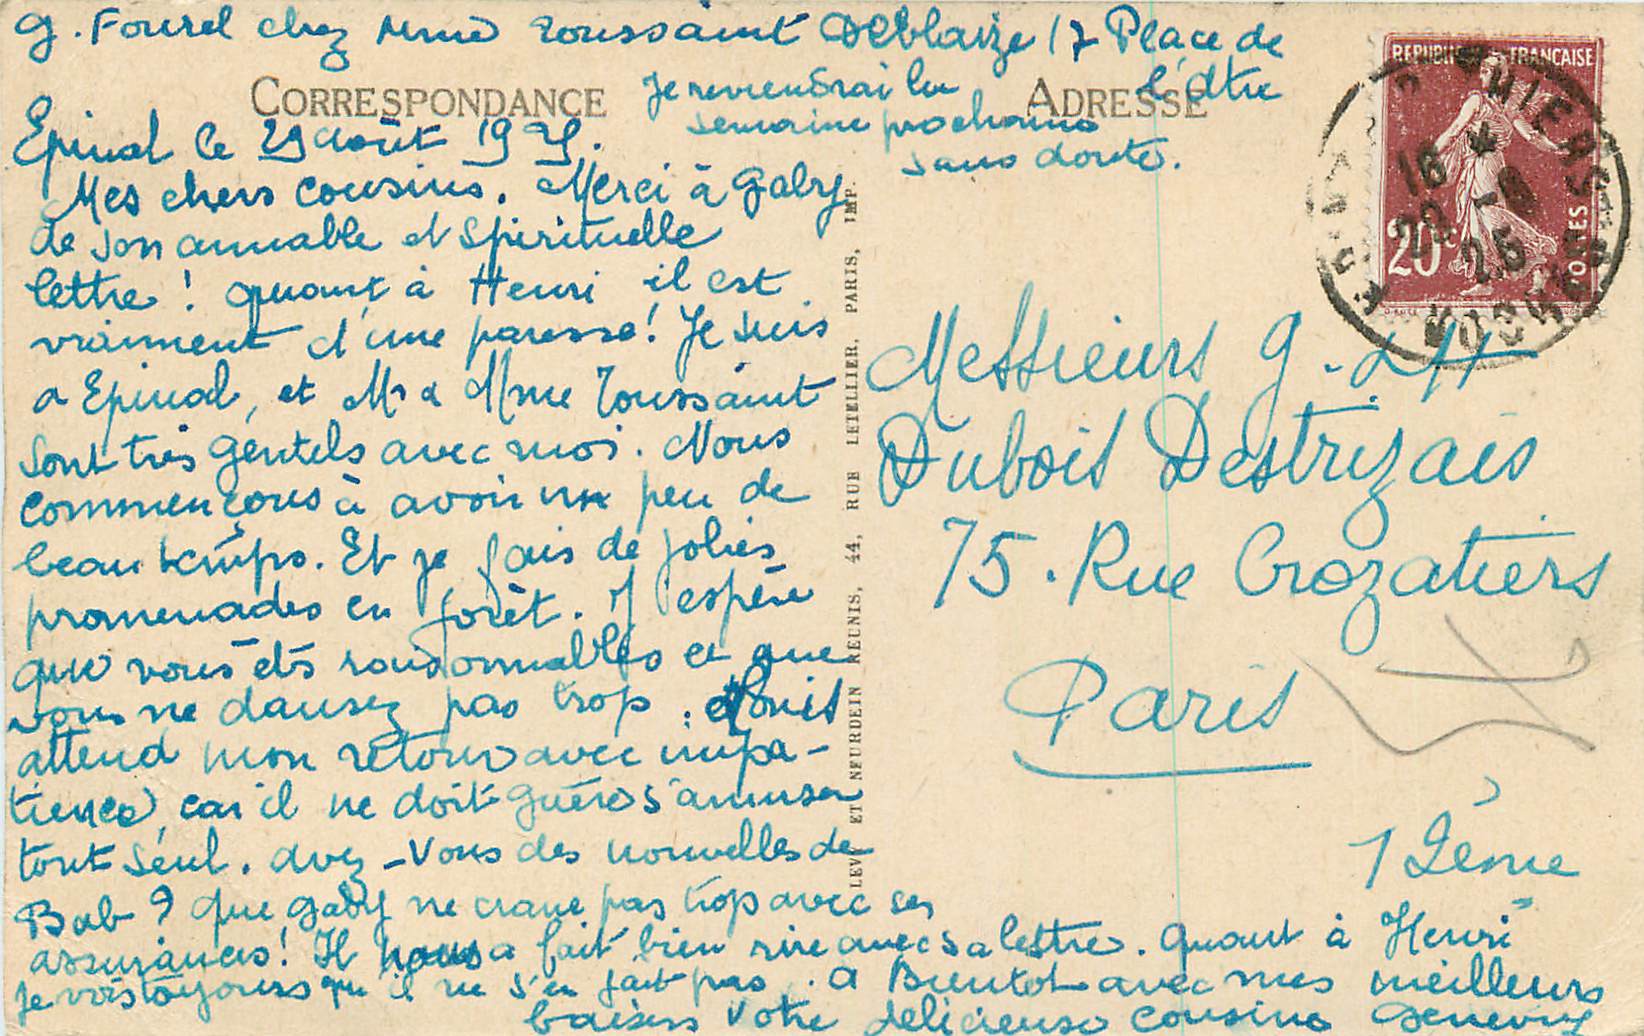 G. Fourel chez Mme Toussaint Deblaize 17 Place de
l'Atre
CORRESPONDANCE
ADRESSE
Je reviendrai la
semaine prochaine
sans doute.
Epinal le 29 août 1925.
Mes chers cousins. Merci à Gaby
de son aimable et spirituelle
lettre ! quant à Henri il est
vraiment d'une paresse ! Je suis
a Epinal, et Mr & Mme Toussaint
sont très gentils avec moi. Nous
commençons à avoir un peu de
beau temps. Et je fais de jolies
promenades en forêt. J'espère
que vous êtes raisonnables et que
vous ne dansez pas trop. Louis
attend mon retour avec impa-
tience, car il ne doit guère s'amuser
tout seul. avez-vous des nouvelles de
Bob ? que Gaby ne crane pas trop avec ses
assurances ! Il nous a fait bien rire avec sa lettre. Quant à Henri
je vois toujours qu'il ne s'en fait pas. A Bientot avec mes meilleurs
baisers votre délicieuse cousine Genevieve
LEVY ET NEURDEIN REUNIS, 44, RUE LETELLIER, PARIS, IMP.
REPUBLIQUE FRANÇAISE
POSTES
20c
16 *
29 - 8
25
PARIS
Messieurs G. & H
Dubois Destrizais
75. Rue Crozatiers
Paris
12ème